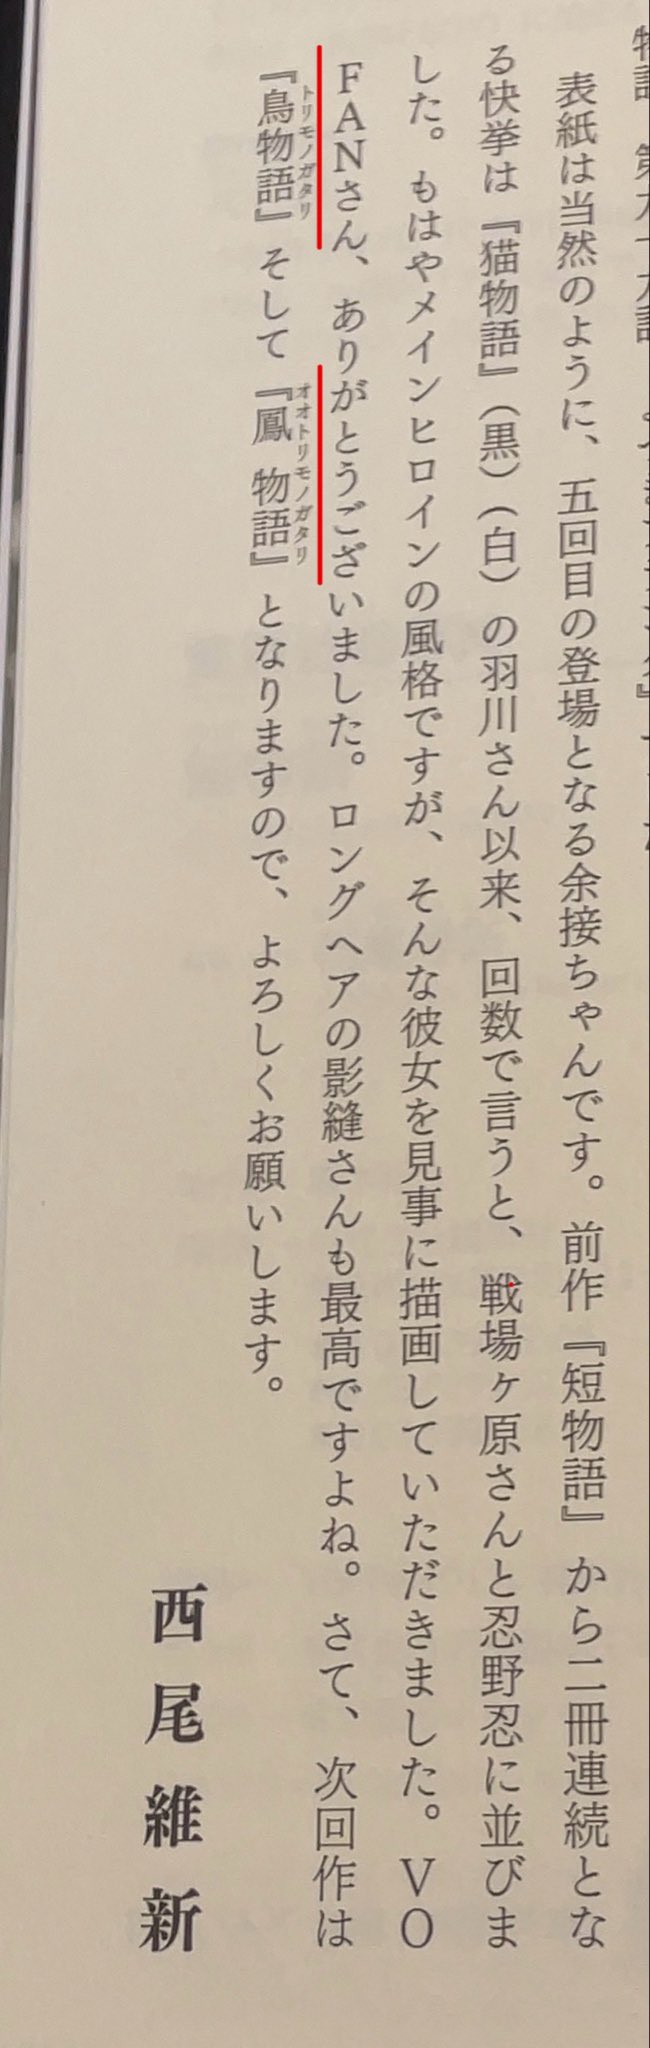 表紙は当然のように、五回目の登場となる余接ちゃんです。前作『短物語』から二冊連続とな
る快挙は『猫物語』(黒)(白)の羽川さん以来、回数で言うと、戦場ヶ原さんと忍野忍に並びま
した。もはやメインヒロインの風格ですが、そんな彼女を見事に描画していただきました。VO
FANさん、ありがとうございました。ロングヘアの影縫さんも最高ですよね。さて、次回作は
『鳥物語』そして『鳳物語』となりますので、よろしくお願いします。
トリモノガタリ
オオトリモノガタリ
西尾維新